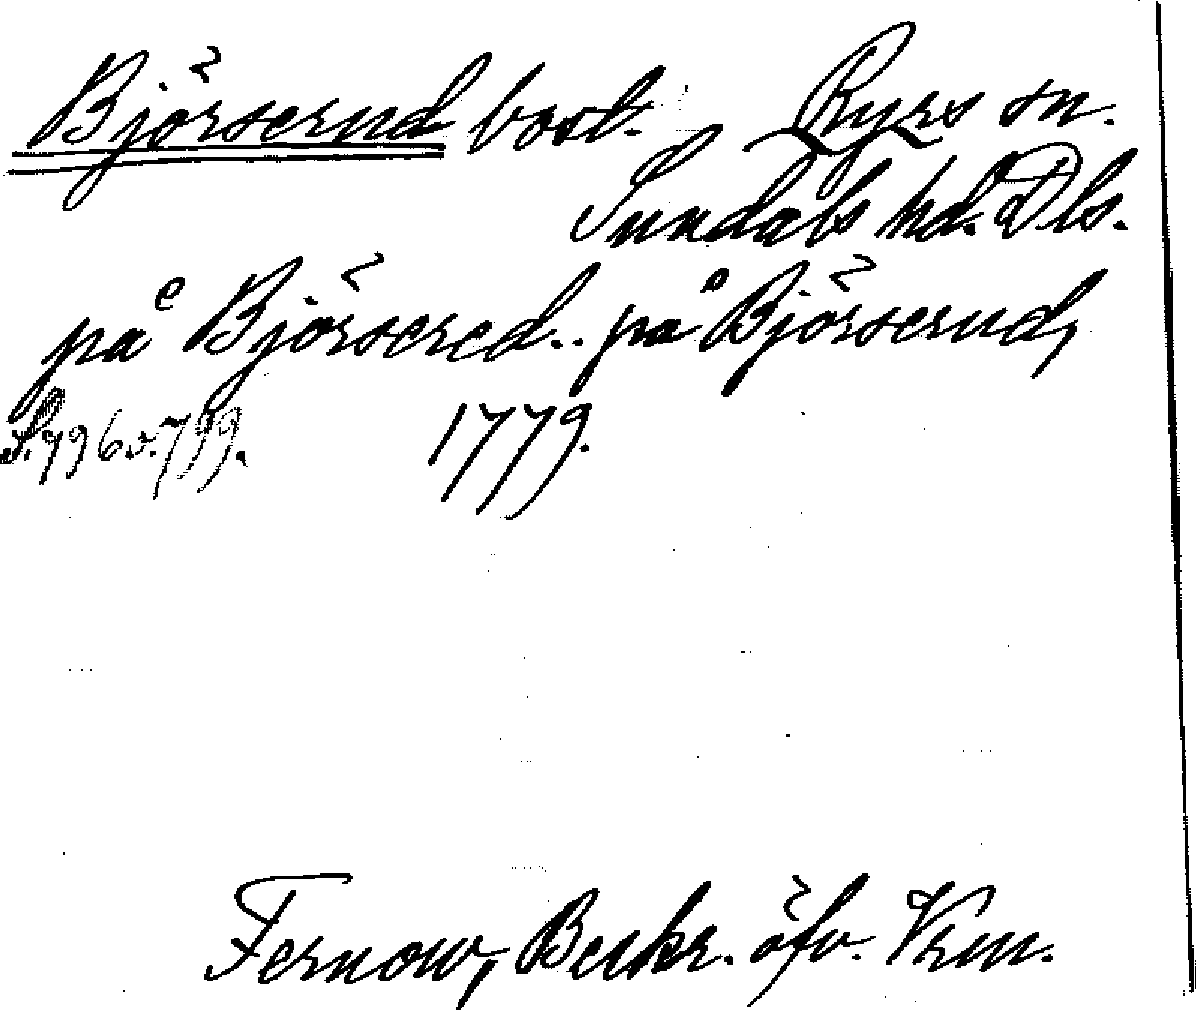 Björserud bost. Ryrs sn.
Sundals hd. Dls.
på Björsered.. på Björserud,
S. 796 o. 799. 1779.
Fernow, Beskr. öfv. Vrm.